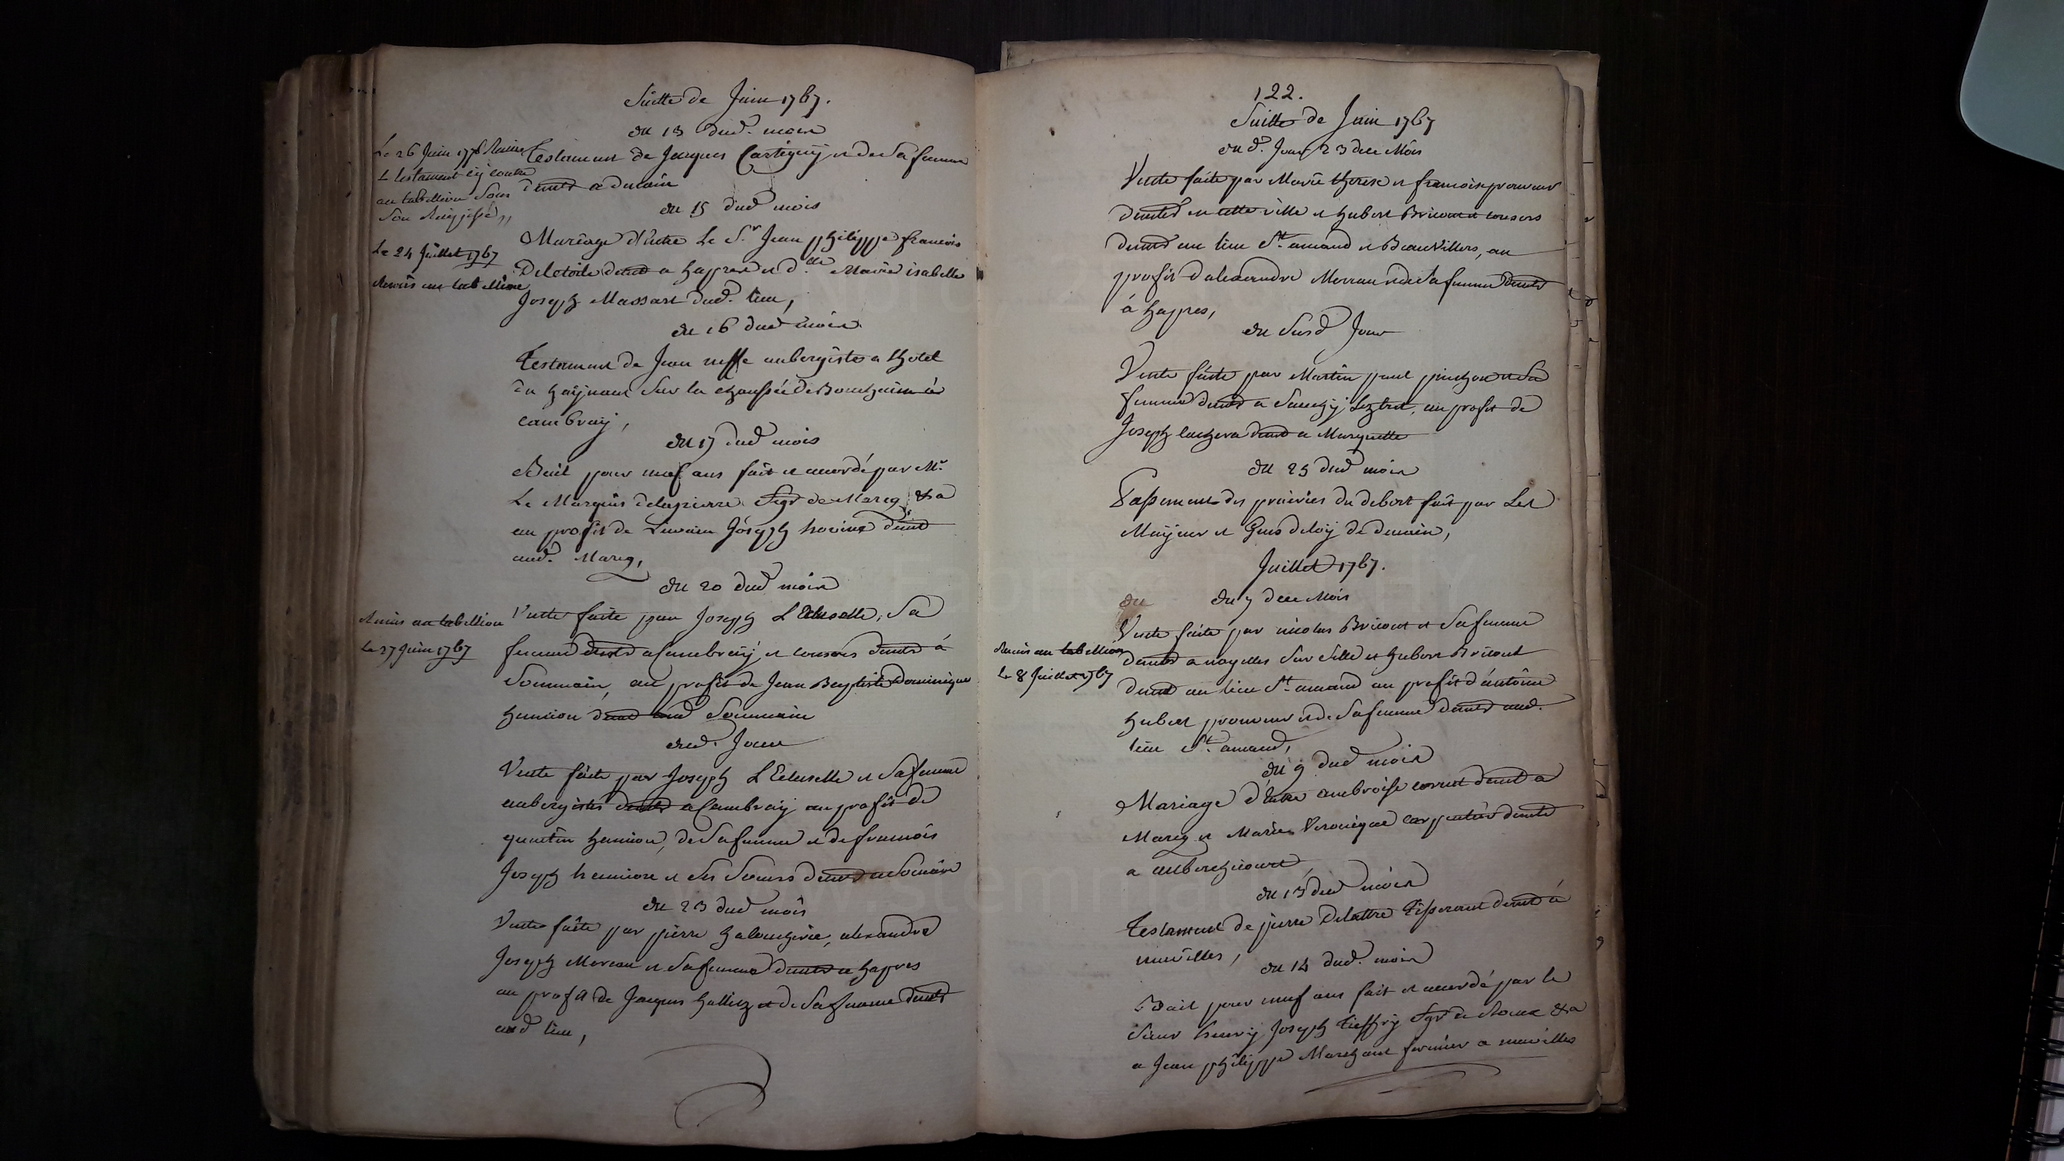 Suitte de Juin 1767.
du 13 dud. mois
Testament de Jacques Cartigny et de Sa femme
demts a denain
Le 26 Juin 1778 Remis
le testament cy contre
au tabellion Sous
Son Recepissé,,
du 15 dud mois
Mariage d'Entre Le Sr. Jean philippe francois
Deletoile demt a happre et dlle Marie isabelle
Joseph Massart dud. lieu,
Le 24 Juillet 1767
Remis au tabellion
du 16 dud mois
Testament de Jean aubergiste a l'hotel
du haijnaut Sur la chaussée de Bouchain à
cambray,
du 17 dud mois
Bail pour neuf ans fait et accordé par Mr.
Le Marquis delapierre Sgr de Marcq &a
au profit de Joseph demt
aud. Marcq,
du 20 dud mois
Vente faite par Joseph L'Ecluselle, Sa
femme demts a Cambray et consors demts à
Sommain, au profit de Jean Baptiste Dominique
hennion demt aud Sommain
Remis au tabellion
Le 27 Juin 1767
dud. Jour
Vente faite par Joseph L'Ecluselle et Sa femme
aubergistes demts a Cambray au profit de
quentin hennion, de Sa femme et de francois
Joseph hennion et Ses Soeurs demts a Somain
du 23 dud mois
Vente faite par pierre alexandre
Joseph Moreau et Sa femme demts a happres
au profit de Jacques et de Sa femme demts
aud lieu,
122.
Suitte de Juin 1767
du d. Jour 23 dud Mois
Vente faite par Marie therese et francoise
demts en cette ville et hubert Bricout et consors
demts au lieu St. amand et Beauvillers, au
profit d'alexandre Moreau et de Sa femme demts
à happres,
du Susd Jour
Vente faite par Martin paul pinchon et Sa
femme demts a Sauchy Lez au profit de
Joseph demt a Marquette
du 25 dud mois
Passement des prairies du fait par Les
Mayeur et Gens de loy de denain,
Juillet 1767.
du du 7 dud Mois
Vente faite par nicolas Bricout et Sa femme
demts a noyelles Sur Selle et hubert Bricout
demt au lieu St. amand au profit d'antoine
hubert et de Sa femme demts aud.
lieu St. amand,
Remis au tabellion
Le 8 Juillet 1767
du 9 dud mois
Mariage d'Entre ambroise cornut demt a
Marcq et Marie Veronique carpentier demte
a auberchicourt
du 13 dud mois
Testament de pierre Delattre tisserant demt à
neuvilles,
du 14 dud. mois
Bail pour neuf ans fait et accordé par le
Sieur henry Joseph Tieffry Sgr de &a
a Jean philippe Marchant fermier a neuvilles